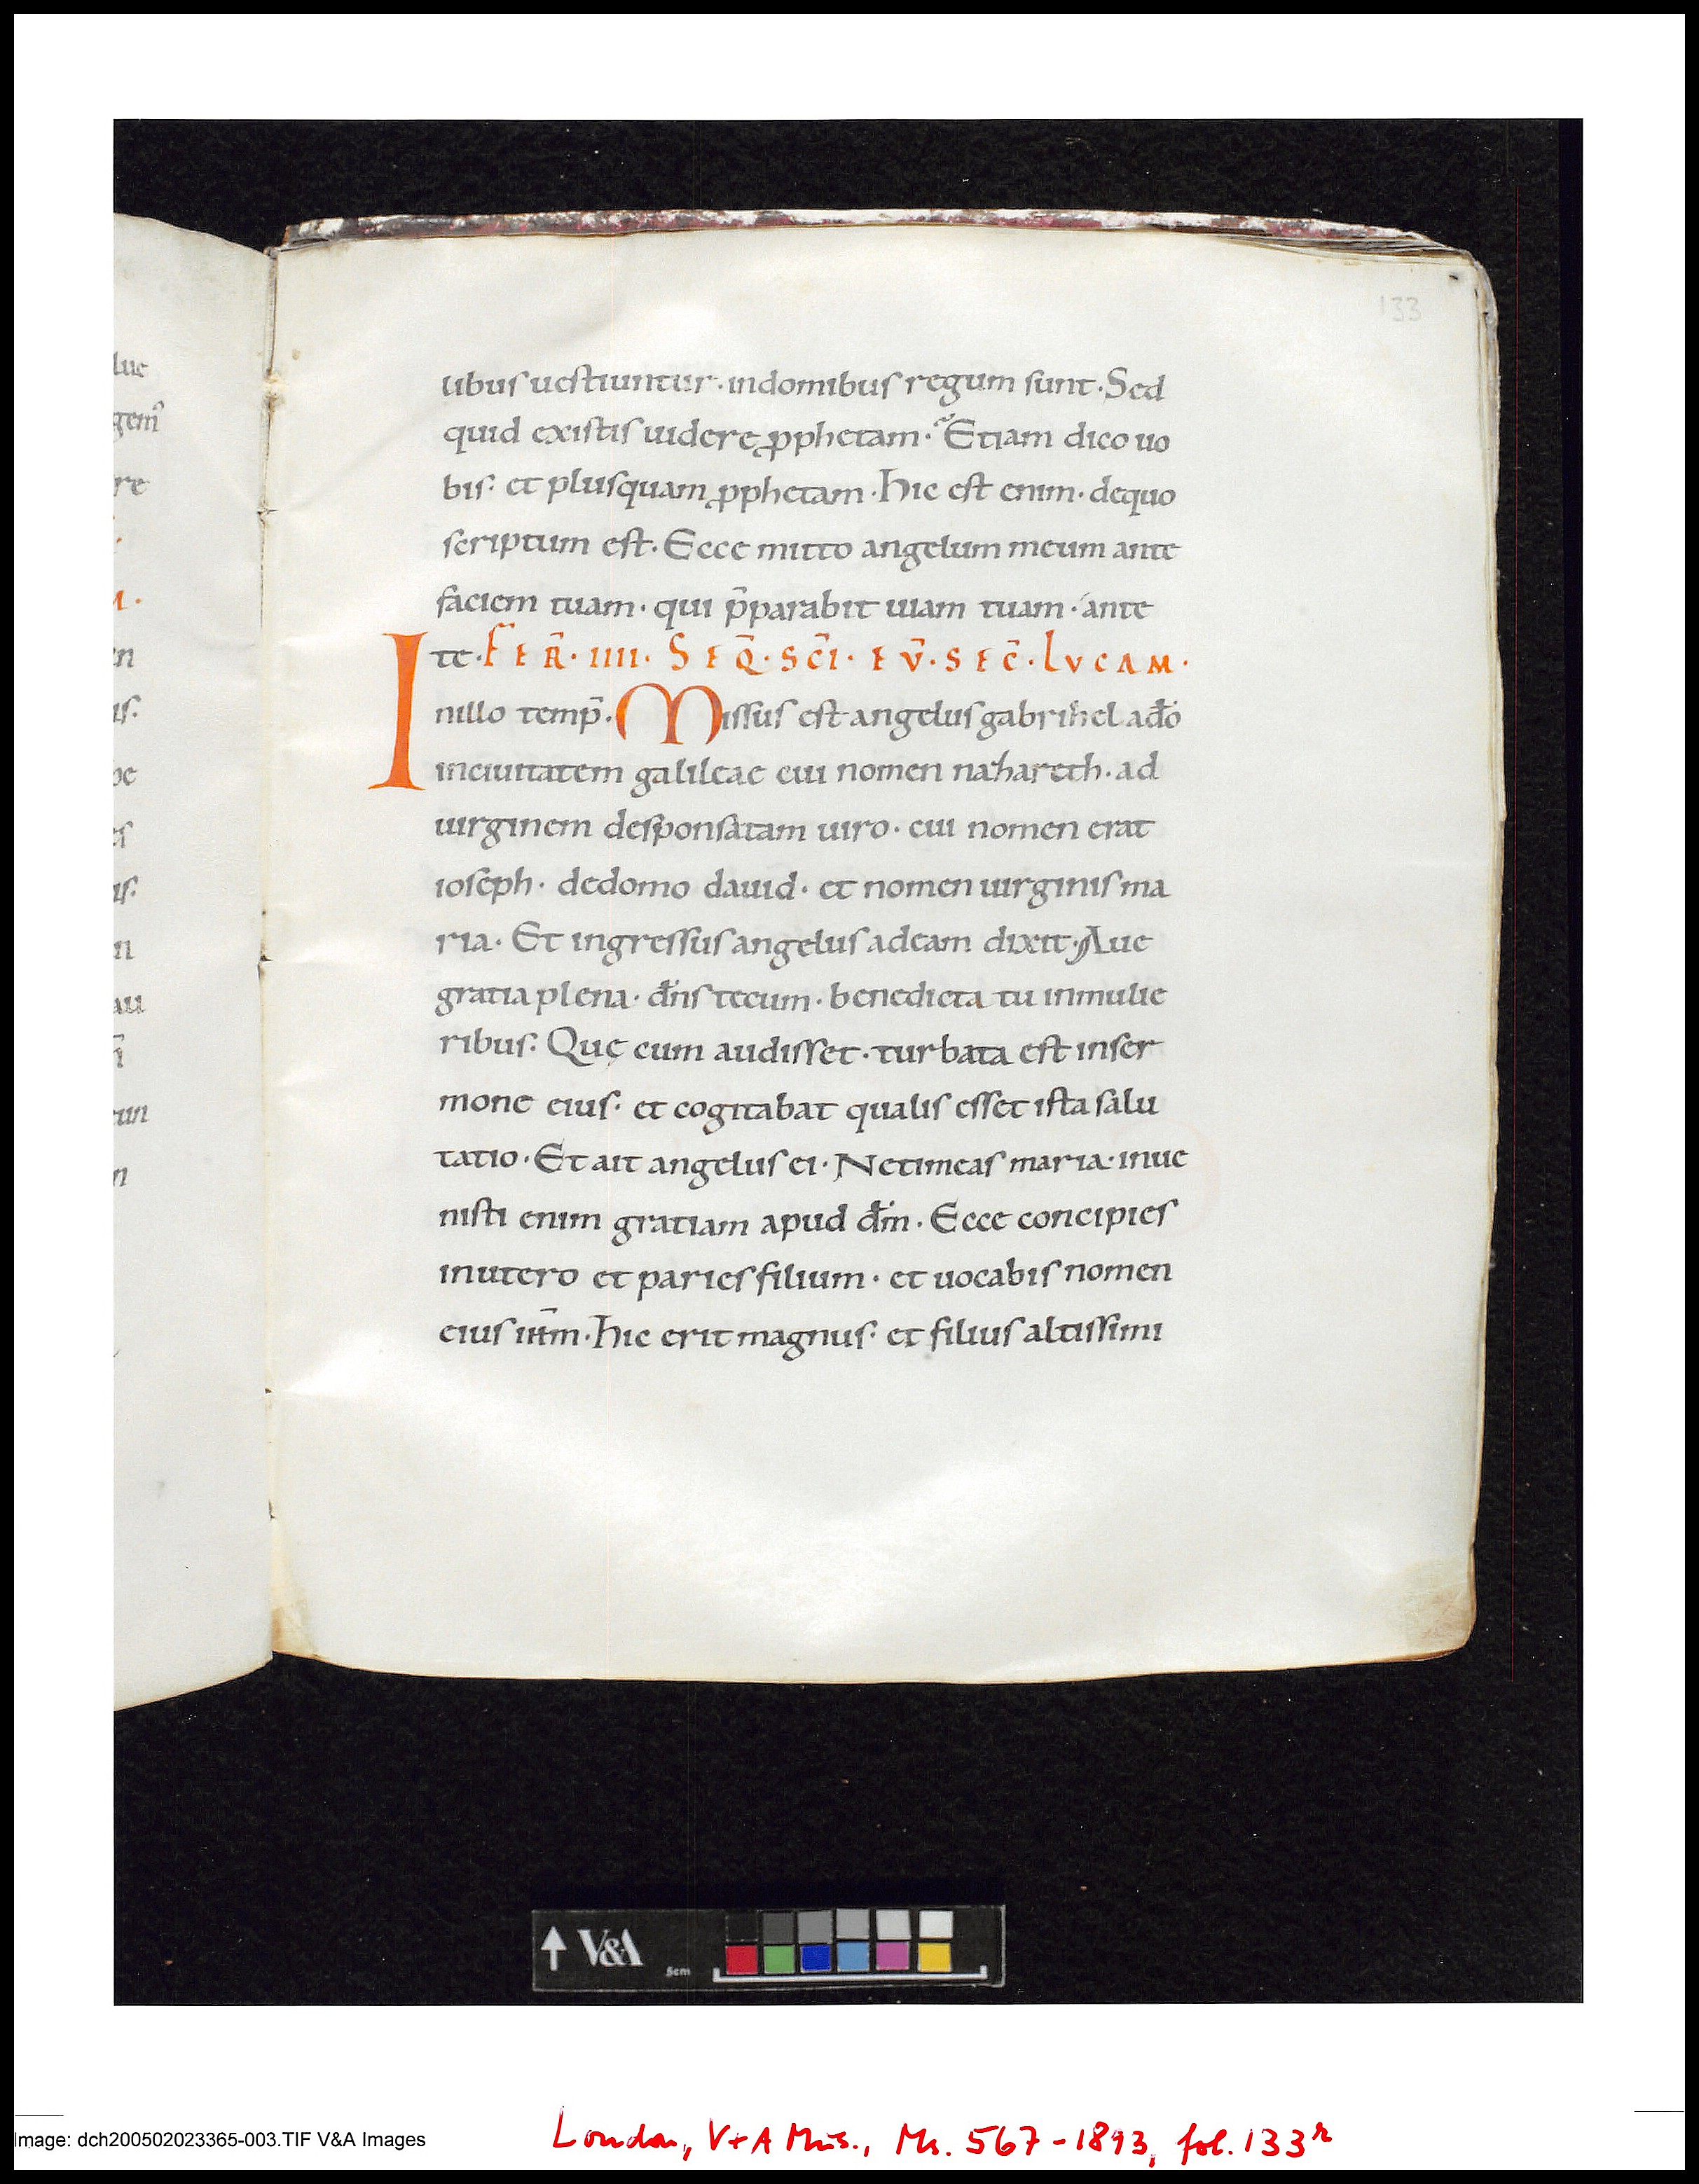 luc
gem̃
re
n
us.
be
es
us.
n
au
un
n
133
ubus uestiuntur · in domibus regum sunt · Sed
quid existis uidere ꝓphetam · Etiam dico uo
bis · et plusquam ꝓphetam · Hic est enim · de quo
scriptum est · Ecce mitto angelum meum ante
faciem tuam · qui p̄parabit uiam tuam · ante
te · FER̄ · IIII · SEQ̄ · SC̄I · EV̄ · SEC̄ · LVCAM ·
Inillo temp̄ · Missus est angelus gabrihel ad̄o
in ciuitatem galileae cui nomen nazhareth · ad
uirginem desponsatam uiro · cui nomen erat
ioseph · de domo dauid · et nomen uirginis ma
ria · Et ingressus angelus ad eam dixit · Aue
gratia plena · dn̄s tecum · benedicta tu in mulie
ribus · Quę cum audisset · turbata est in ser
mone eius · et cogitabat qualis esset ista salu
tatio · Et ait angelus ei · Ne timeas maria · inue
nisti enim gratiam apud dm̄ · Ecce concipies
in utero et paries filium · et uocabis nomen
eius ih̄m · Hic erit magnus · et filius altissimi
V&A
5cm
Image: dch200502023365-003.TIF V&A Images
London, V+A Mus., Ms. 567-1893, fol. 133r